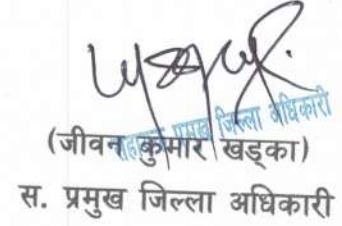 सहायक प्रमुख जिल्ला अधिकारी
(जीवन कुमार खड्का)
स. प्रमुख जिल्ला अधिकारी